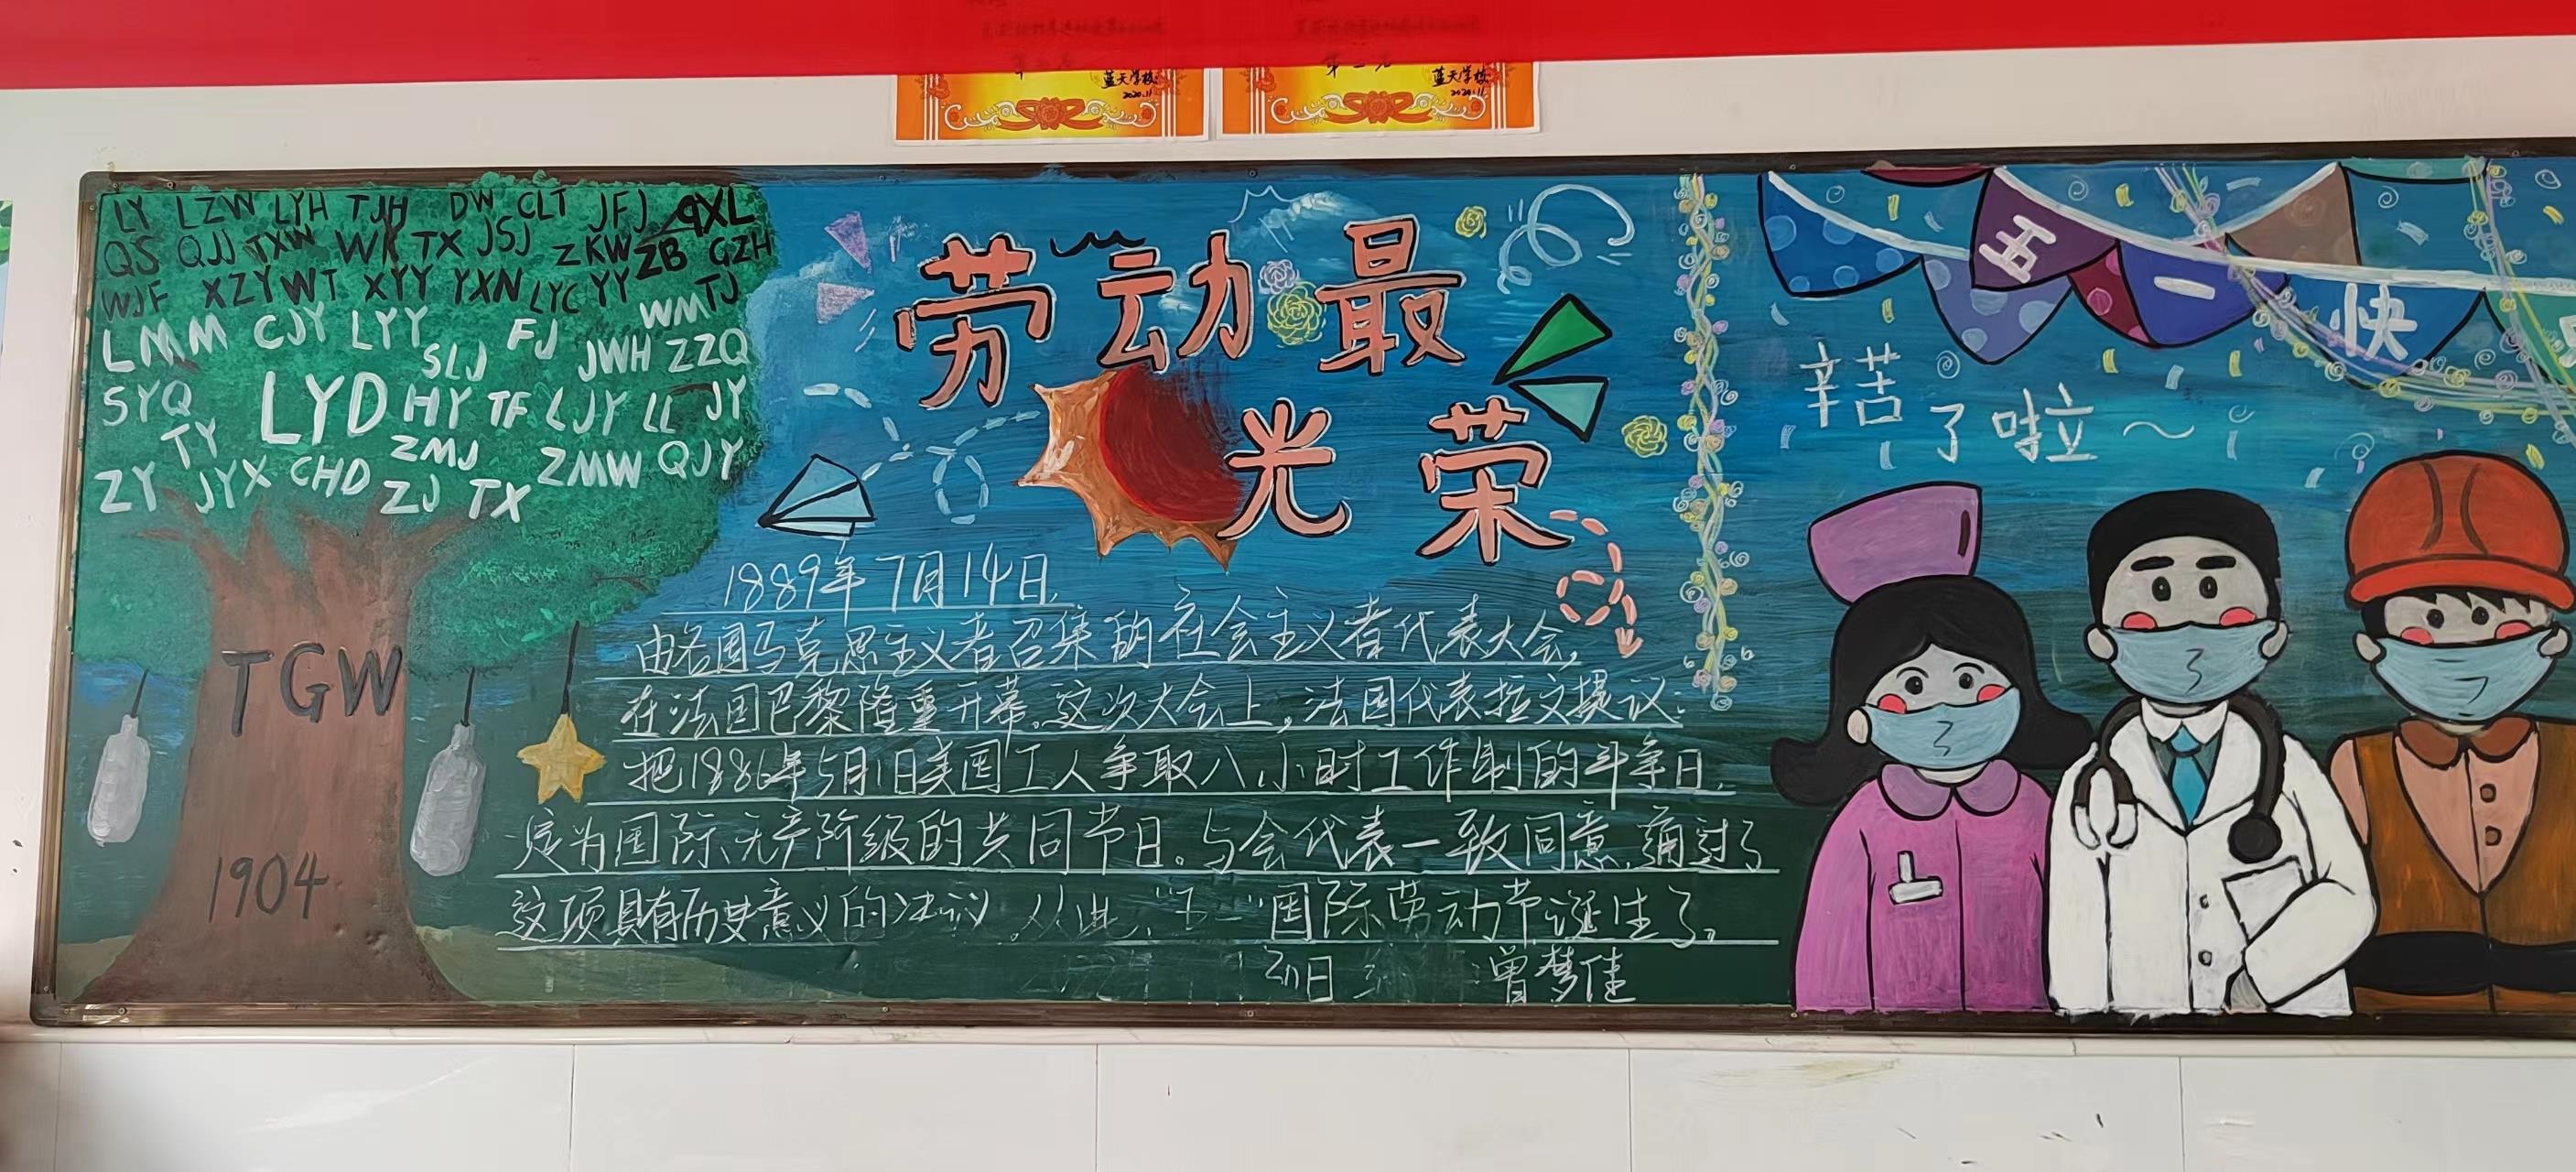 蓝天学校
2020.11
蓝天学校
2020.11
LY LZW LYH TJH DW CLT JFJ QXL
QS QJJ TXW WK TX JSJ ZKW ZB GZH
WJF XZY WT XYY YXN LYC YY WM TJ
LMM CJY LYY SLJ FJ JWH ZZQ
SYQ LYD HY TF LJY LL JY
TY ZMJ
ZY JYX CHD ZJ TX ZMW QJY
TGW
1904
劳动最
光荣
1889年7月14日,
由各国马克思主义者召集的社会主义者代表大会,
在法国巴黎隆重开幕。这次大会上,法国代表拉文提议:
把1886年5月1日美国工人争取八小时工作制的斗争日,
定为国际无产阶级的共同节日。与会代表一致同意,通过了
这项具有历史意义的决议。从此,“五一”国际劳动节诞生了。
曾梦佳
五一快
辛苦了啦~